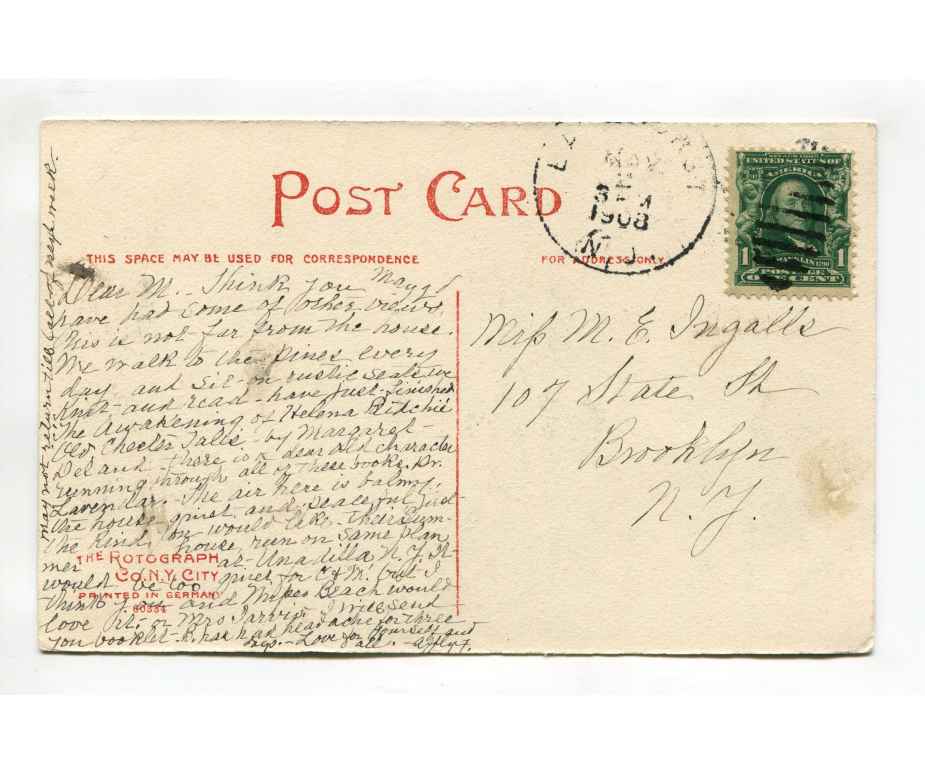 POST CARD
THIS SPACE MAY BE USED FOR CORRESPONDENCE
FOR ADDRESS ONLY
NOV
3 PM
1908
N.J.
UNITED STATES OF
AMERICA
1
1
FRANKLIN 1790
POSTAGE
ONE CENT
Dear M. Think you
have had some of other views
This is not far from the house.
We walk to the pines every
day and sit on rustic seats we
knit and read - have just finished
The Awakening of Helena Ritchie
Old Chester Tales - by Margaret
Deland - there is a dear old character
running through all of these books. Dr.
Lavendar. The air here is balmy,
the house quiet and peaceful just
the kind you would like. Their Sum-
mer house run on same plan
at Unadilla N.Y. It
would be too quiet for but I
think you and Misses Beach would
love it. Mrs Jarvis I will send
you booklet - has had headache for three
days - Love for yourself and
all -
may not return till of next week.
THE ROTOGRAPH
CO. N.Y. CITY
PRINTED IN GERMANY
Miss M. E. Ingalls
107 State St
Brooklyn
N.Y.